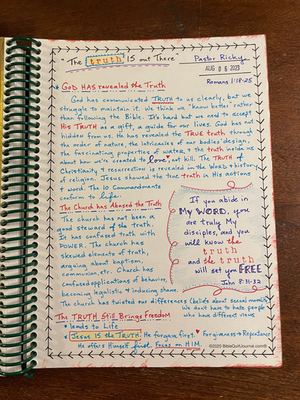 "The truth is out There"
Pastor Ricky
AUG 06 2023
Romans 1:18-25
GOD HAS revealed the Truth
God has communicated TRUTH to us clearly, but we
struggle to maintain it. We think we "know better" rather
than following the Bible. It's hard but we need to accept
His TRUTH as a gift, a guide for our lives. God has not
hidden from us. He has revealed the TRUE truth through
the order of nature, the intricacies of our bodies' design,
the fascinating properties of water, & the truth inside us
about how we're created to love, not kill. The TRUTH of
Christianity & resurrection is revealed in the Word & history
of religion. Jesus showed the true truth in His actions
& word. The 10 Commandments
conform to life.
The Church has Abused the Truth
The church has not been a
good steward of the truth.
It has confused truth with
POWER. The church has
skewed elements of truth,
arguing about baptism,
communion, etc. Church has
confused applications of behavior,
becoming legalistic & inducing shame.
The church has twisted our differences (beliefs about sexual morality)
We don't have to hate people
who have different views
If you abide in
My WORD, you
are truly My
disciples, and you
will know the
truth
and the truth
will set you FREE
John 8:31-32
The TRUTH Still Brings Freedom
leads to Life
Jesus is the TRUTH. He forgave first. Forgiveness → Repentance
He offers Himself first. Focus on HIM.
©2020 BibleQuiltJournal.com®